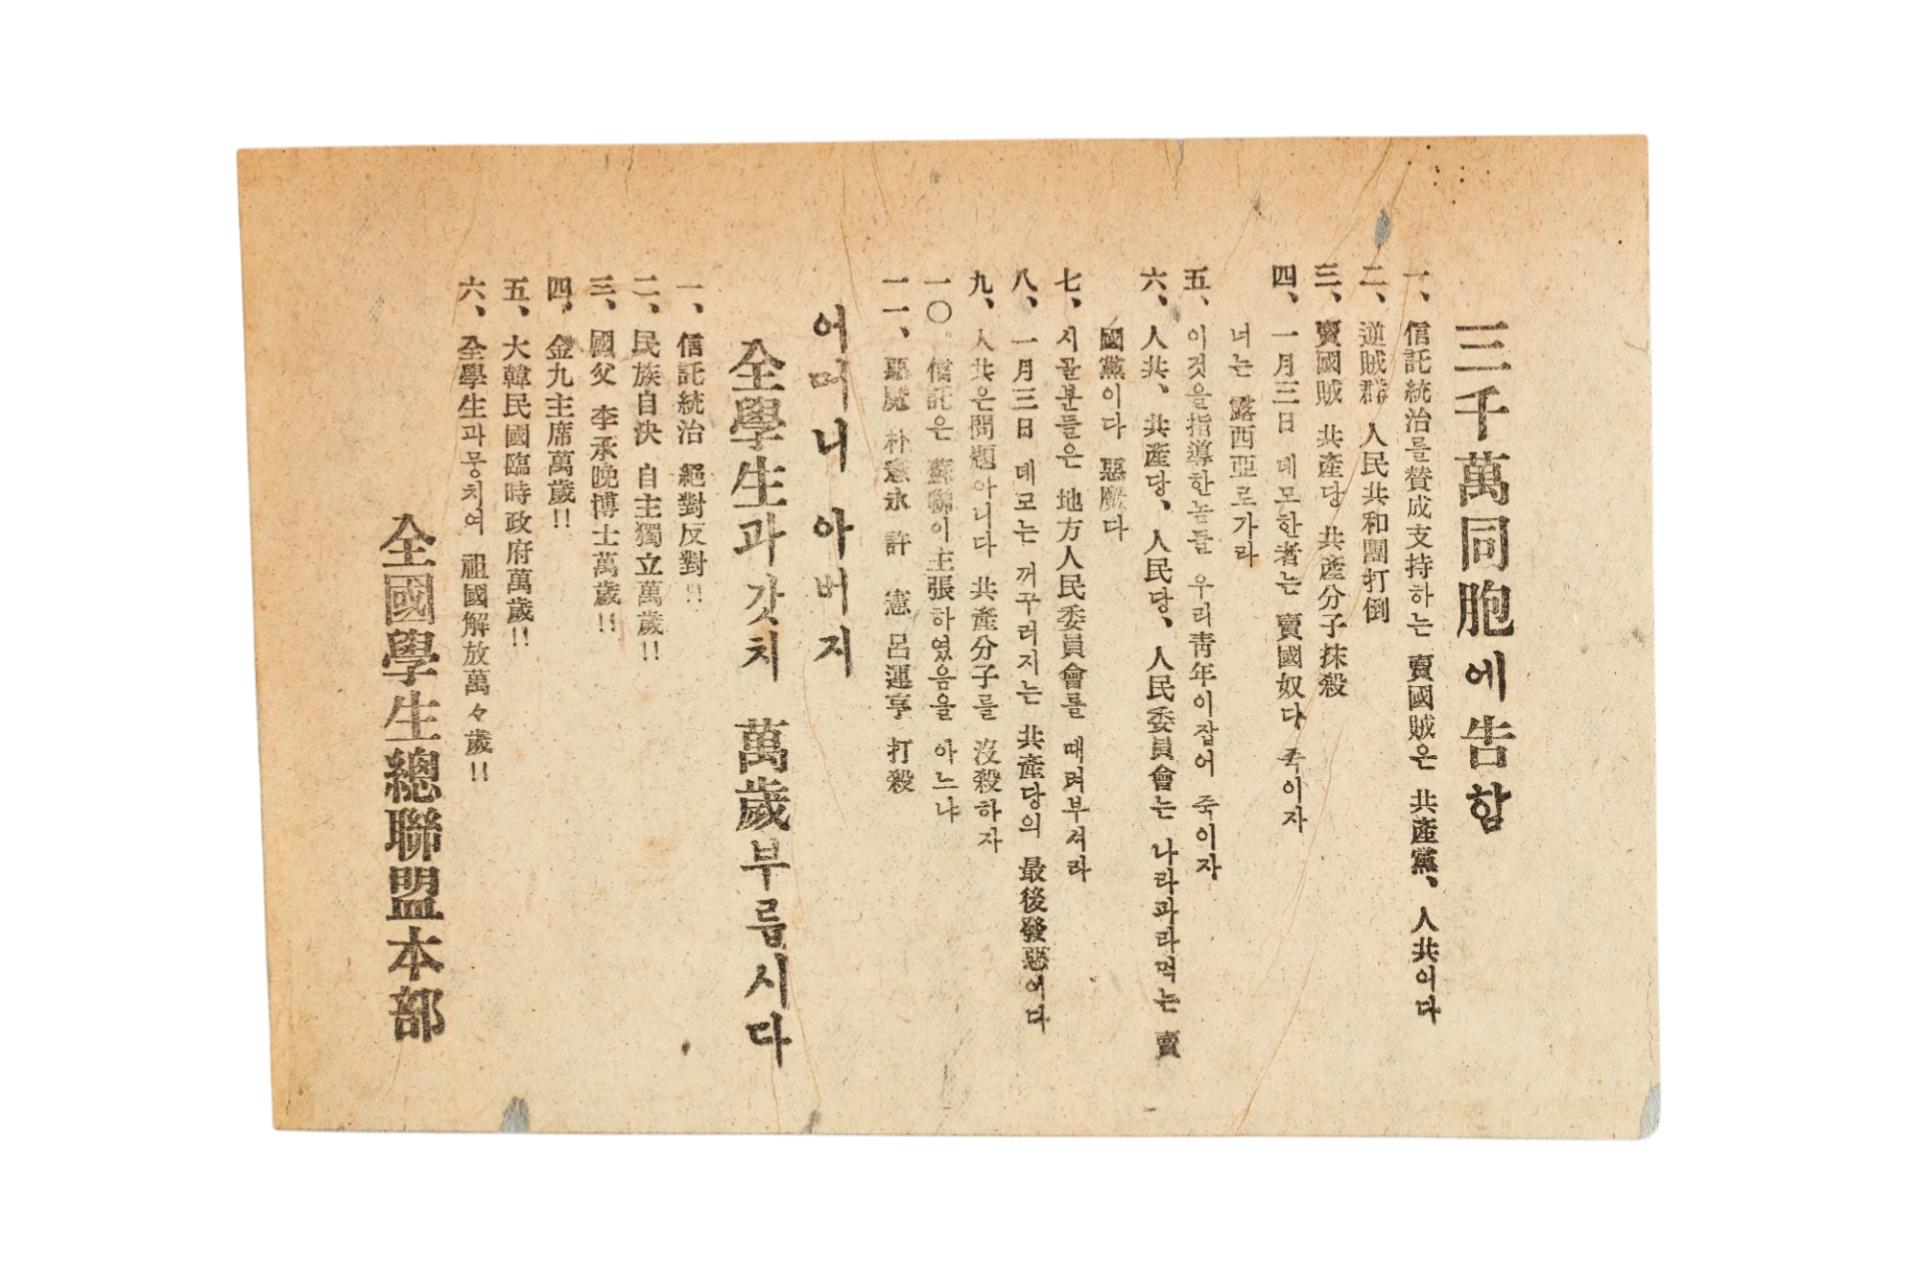 三千萬同胞에告함
一、信託統治를贊成支持하는 賣國賊은 共產黨、人共이다
二、逆賊群 人民共和國打倒
三、賣國賊 共產당 共產分子抹殺
四、一月三日 데모한者는 賣國奴다 죽이자
너는 露西亞로가라
五、이것을指導한놈들 우리靑年이잡어 죽이자
六、人共、共產당、人民당、人民委員會는 나라파라먹는 賣
國黨이다 惡魔다
七、시골분들은 地方人民委員會를 때려부셔라
八、一月三日 데모는 꺼꾸러지는 共產당의 最後發惡이다
九、人共은問題아니다 共產分子를 沒殺하자
一〇、信託은 蘇聯이主張하였음을 아느냐
一一、惡魔 朴憲永 許 憲 呂運亨 打殺
어머니 아버지
全學生과갓치 萬歲부릅시다
一、信託統治 絕對反對!!
二、民族自決 自主獨立萬歲!!
三、國父 李承晩博士萬歲!!
四、金九主席萬歲!!
五、大韓民國臨時政府萬歲!!
六、全學生과뭉치여 祖國解放萬々歲!!
全國學生總聯盟本部